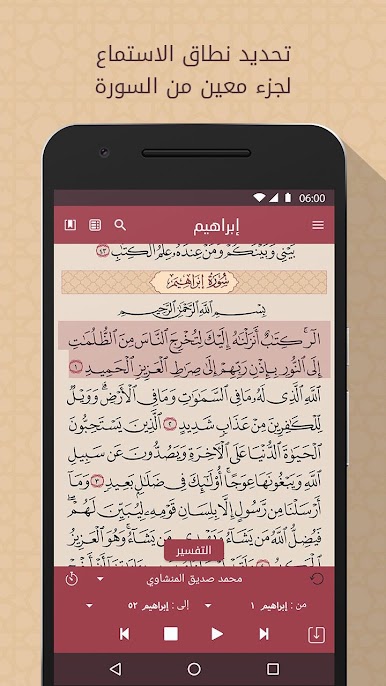 تحديد نطاق الاستماع
لجزء معين من السورة
06:00
إبراهيم
بَيْنِي وَبَيْنَكُمْ وَمَنْ عِندَهُۥ عِلْمُ ٱلْكِتَٰبِ ٤٣
سُورَةُ إِبْرَاهِيمَ
بِسْمِ ٱللَّهِ ٱلرَّحْمَٰنِ ٱلرَّحِيمِ
الٓر ۚ كِتَٰبٌ أَنزَلْنَٰهُ إِلَيْكَ لِتُخْرِجَ ٱلنَّاسَ مِنَ ٱلظُّلُمَٰتِ
إِلَى ٱلنُّورِ بِإِذْنِ رَبِّهِمْ إِلَىٰ صِرَٰطِ ٱلْعَزِيزِ ٱلْحَمِيدِ ١
ٱللَّهِ ٱلَّذِي لَهُۥ مَا فِي ٱلسَّمَٰوَٰتِ وَمَا فِي ٱلْأَرْضِ ۗ وَوَيْلٌ
لِّلْكَٰفِرِينَ مِنْ عَذَابٍ شَدِيدٍ ٢ ٱلَّذِينَ يَسْتَحِبُّونَ
ٱلْحَيَوٰةَ ٱلدُّنْيَا عَلَى ٱلْأَخِرَةِ وَيَصُدُّونَ عَن سَبِيلِ
ٱللَّهِ وَيَبْغُونَهَا عِوَجًا ۚ أُو۟لَٰٓئِكَ فِي ضَلَٰلٍۭ بَعِيدٍ ٣ وَمَآ
أَرْسَلْنَا مِن رَّسُولٍ إِلَّا بِلِسَانِ قَوْمِهِۦ لِيُبَيِّنَ لَهُمْ ۖ
فَيُضِلُّ ٱللَّهُ مَن يَشَآءُ وَيَهْدِي مَن يَشَآءُ ۚ وَهُوَ ٱلْعَزِيزُ
التفسير
محمد صديق المنشاوي
من : إبراهيم ١
إلى : إبراهيم ٥٢